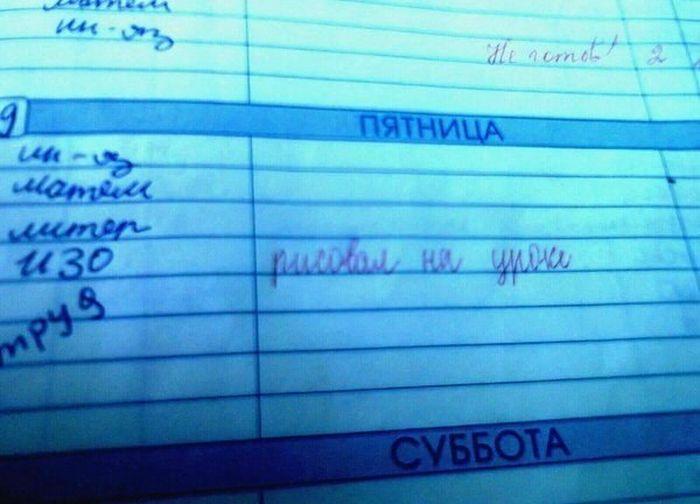 матем
ин-яз
Не готов! 2
9 ПЯТНИЦА
ин-яз
матем
литер
ИЗО рисовал на уроке
труд
СУББОТА